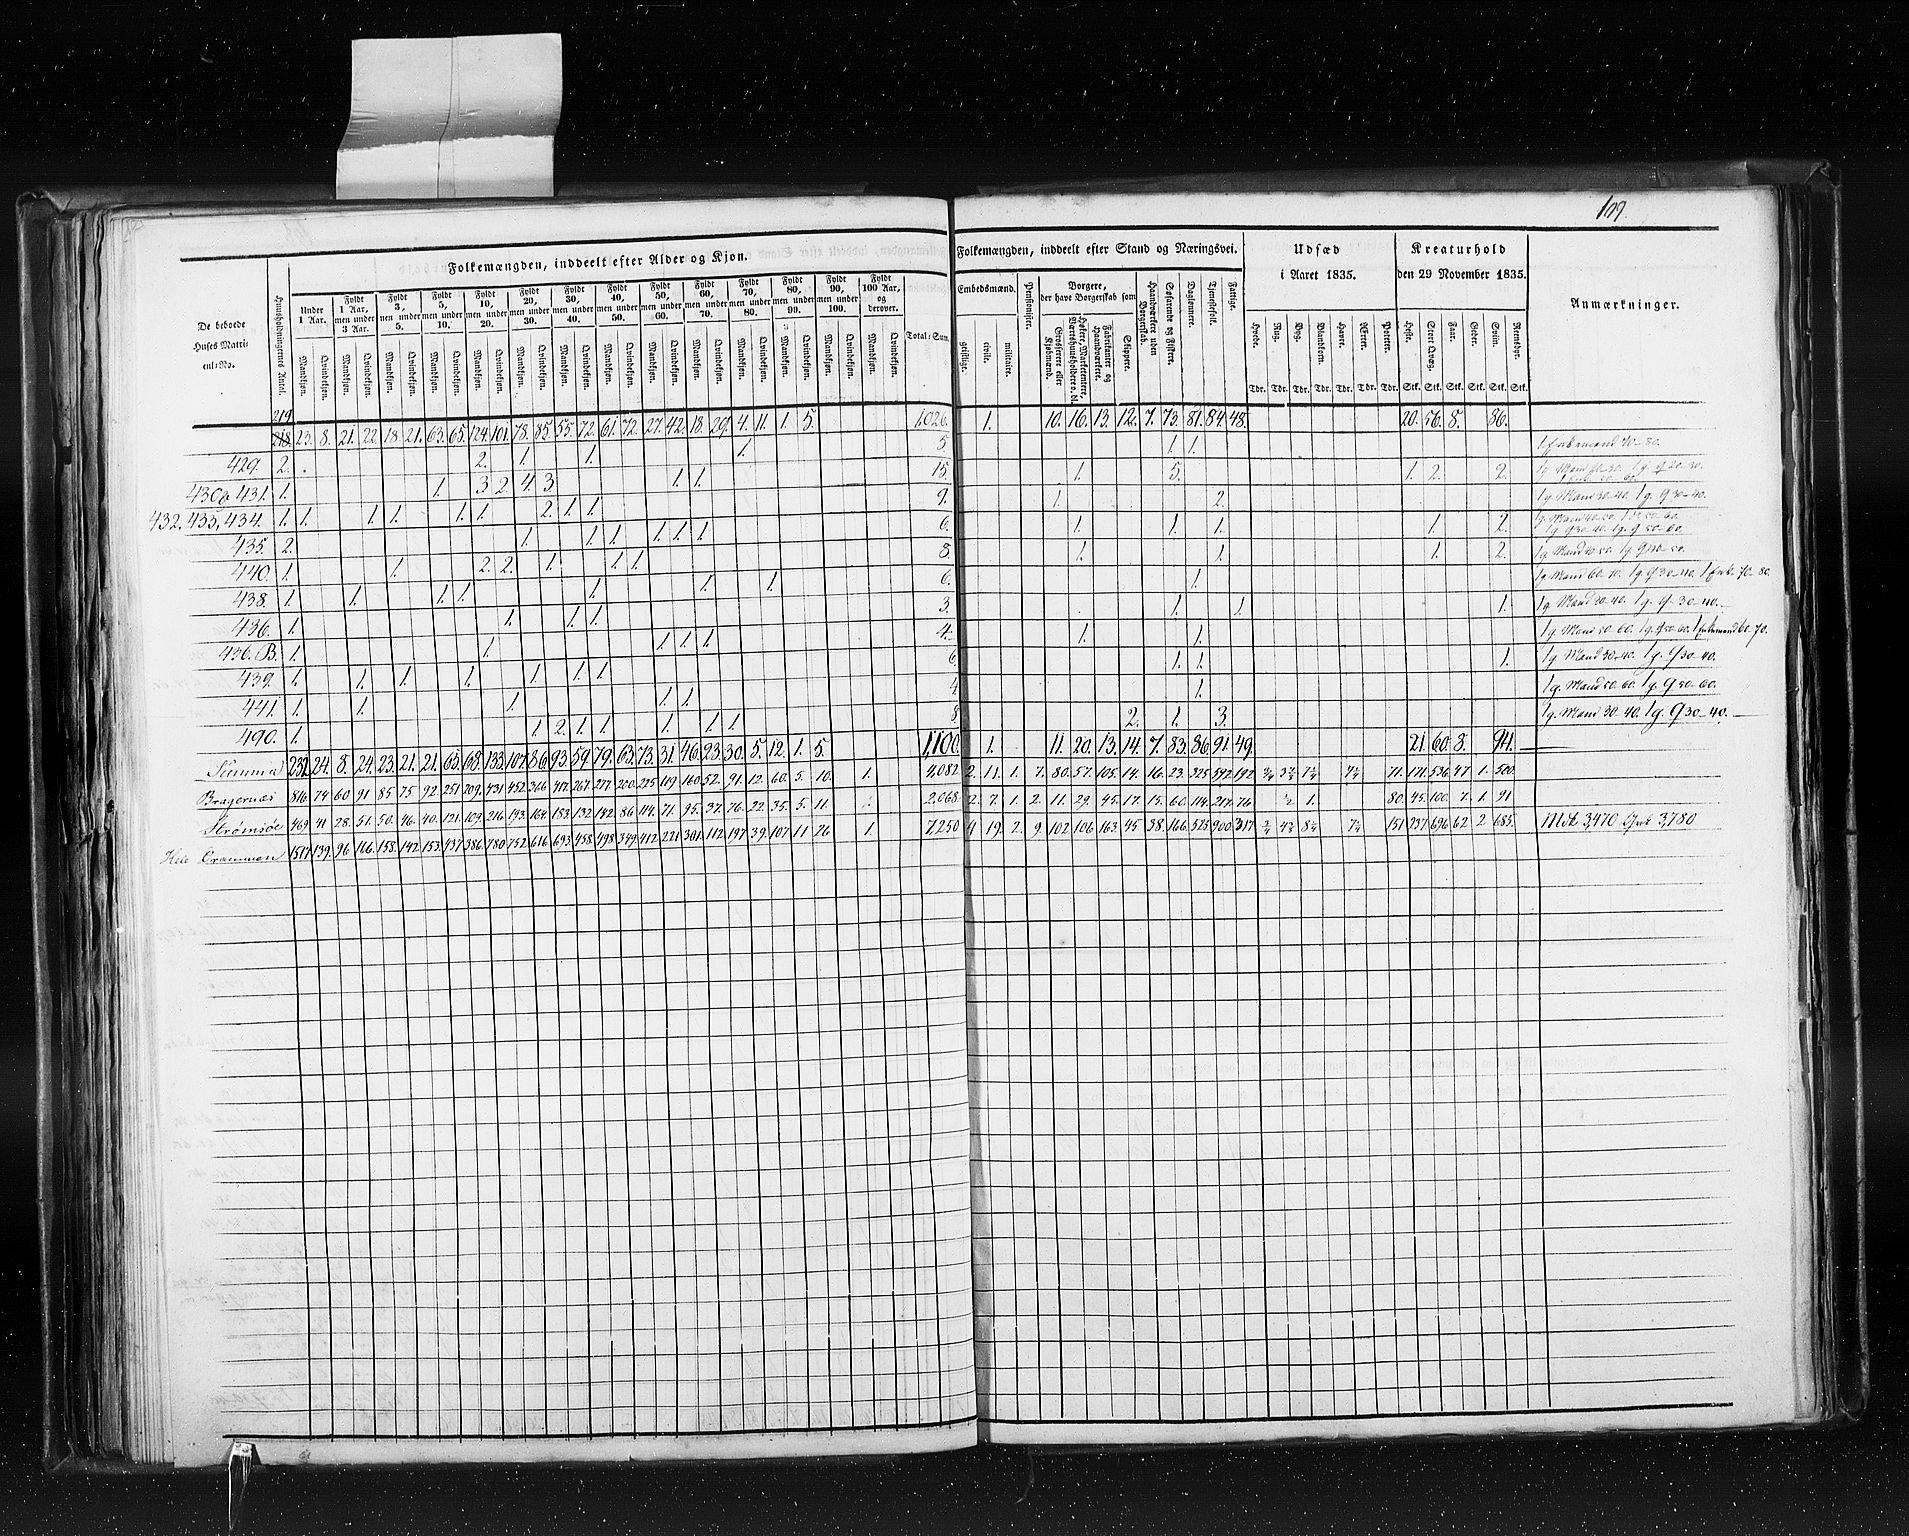 109.
Folkemængden, inddeelt efter Alder og Kjøn.
De beboede Huses Matricul-No.
Huusholdningernes Antal.
Under 1 Aar.
Fyldt 1 Aar, men under 3 Aar.
Fyldt 3, men under 5.
Fyldt 5, men under 10.
Fyldt 10, men under 20.
Fyldt 20, men under 30.
Fyldt 30, men under 40.
Fyldt 40, men under 50.
Fyldt 50, men under 60.
Fyldt 60, men under 70.
Fyldt 70, men under 80.
Fyldt 80, men under 90.
Fyldt 90, men under 100.
Fyldt 100 Aar, og derover.
Mandkjøn. Qvindekjøn.
Total-Sum.
Folkemængden, inddeelt efter Stand og Næringsvei.
Embedsmænd.
geistlige. civile. militaire.
Pensionister.
Borgere, der have Borgerskab som
Grosserere eller Kjøbmænd.
Høkere, Marketentere, Værtshuusholdere o. dl.
Fabrikanter og Haandværkere.
Skippere.
Haandværkere uden Borgerskab.
Søfarende og Fiskere.
Daglønnere.
Tjenestefolk.
Fattige.
Udsæd i Aaret 1835.
Hvede. Rug. Byg. Blandkorn. Havre. Ærter. Poteter.
Tdr. Tdr. Tdr. Tdr. Tdr. Tdr. Tdr.
Kreaturhold den 29 November 1835.
Heste. Stort Qvæg. Faar. Geder. Sviin. Rensdyr.
Stk. Stk. Stk. Stk. Stk. Stk.
Anmærkninger.
219
218. 23. 8. 21. 22. 18. 21. 63. 65. 124. 101. 78. 85. 55. 72. 61. 72. 27. 42. 18. 29. 4. 11. 1. 5. 1,026. 1. 10. 16. 13. 12. 7. 73. 81. 84. 48. 20. 56. 8. 86.
429. 2. 2. 1. 1. 1. 5. 1. 1. 1 Enkemand 70-80.
430 & 431. 1. 1. 3 2. 4. 3 1. 1. 15. 1. 5. 1. 2. 2.
432, 433, 434. 1. 1. 1. 1. 1. 1. 2. 1. 1. 9. 1. 2. 1 g. Mand 30-40. 1 g. Q 30-40.
435. 2. 1. 1. 1. 1. 1. 1. 6. 1. 1. 1. 1. 2. 1 g. Q 30-40. 1 g. Q 50-60.
440. 1. 1. 2. 2. 1. 1. 1. 8. 1. 1. 1. 2. 1 g. Mand 40-50. 1 g. Q 40-50.
438. 1. 1. 1. 1. 1. 1. 1. 6. 1. 1 g. Mand 60-70. 1 g. Q 30-40. 1 Enk. 70-80.
436. 1. 1. 1. 1. 3. 1. 1. 1. 1 g. Mand 30-40. 1 g. Q 30-40.
436. B. 1. 1. 1. 1. 1. 4. 1. 1. 1 g. Mand 50-60. 1 g. Q 50-60. 1 Enkemand 60-70.
439. 1. 1. 1. 1. 1. 1. 1. 6. 1. 1. 1. 1 g. Mand 30-40. 1 g. Q 30-40.
441. 1. 1. 1. 1. 1. 4 1. 1 g. Mand 50-60. 1 g. Q 50-60.
490. 1. 1. 2. 1. 1. 1. 1. 1. 8 2. 1. 3. 1 g. Mand 30-40. 1 g. Q 30-40.
Summa 232. 24. 8. 24. 23. 21. 21. 65. 68. 133. 107. 86. 93. 59. 79. 63. 73. 31. 46. 23. 30. 5. 12. 1. 5. 1,100. 1. 11. 20. 13. 14. 7. 83. 86. 91. 49. 21. 60. 8. 94.
Bragernæs 816. 74 60. 91 85 75 92 251 209. 431 452. 366 417. 267. 277 200. 225 119 160. 52. 91. 12. 60. 5. 10. 1. 4,082 2. 11. 1. 7. 80. 57. 105. 14. 16. 23. 325 592. 192 71. 171. 536. 47 1. 500.
Strømsøe 469. 41 28. 51. 50. 46. 40. 121. 109. 216 193. 164. 183. 132 142. 86 114. 71. 95. 37. 76. 22. 35. 5. 11. 2,068. 2. 7. 1. 2. 11. 29. 45. 17. 15. 60. 114. 217. 76 80. 45. 100. 7. 1. 91
Hele Drammen 1517. 139. 96 166. 158. 142. 153. 437. 386. 780. 752. 616. 693. 458. 498. 349. 412. 221. 301. 112. 197. 39. 107. 11 26 1. 7,250 4 19. 2. 9. 102 106. 163. 45. 38. 166. 525. 900. 317 151 237. 696. 62 2 685. Mdk 3,470 Qvk 3,780